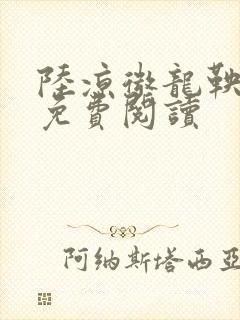 陸凉徹龍鞅
免費閱讀
阿纳斯塔西亚